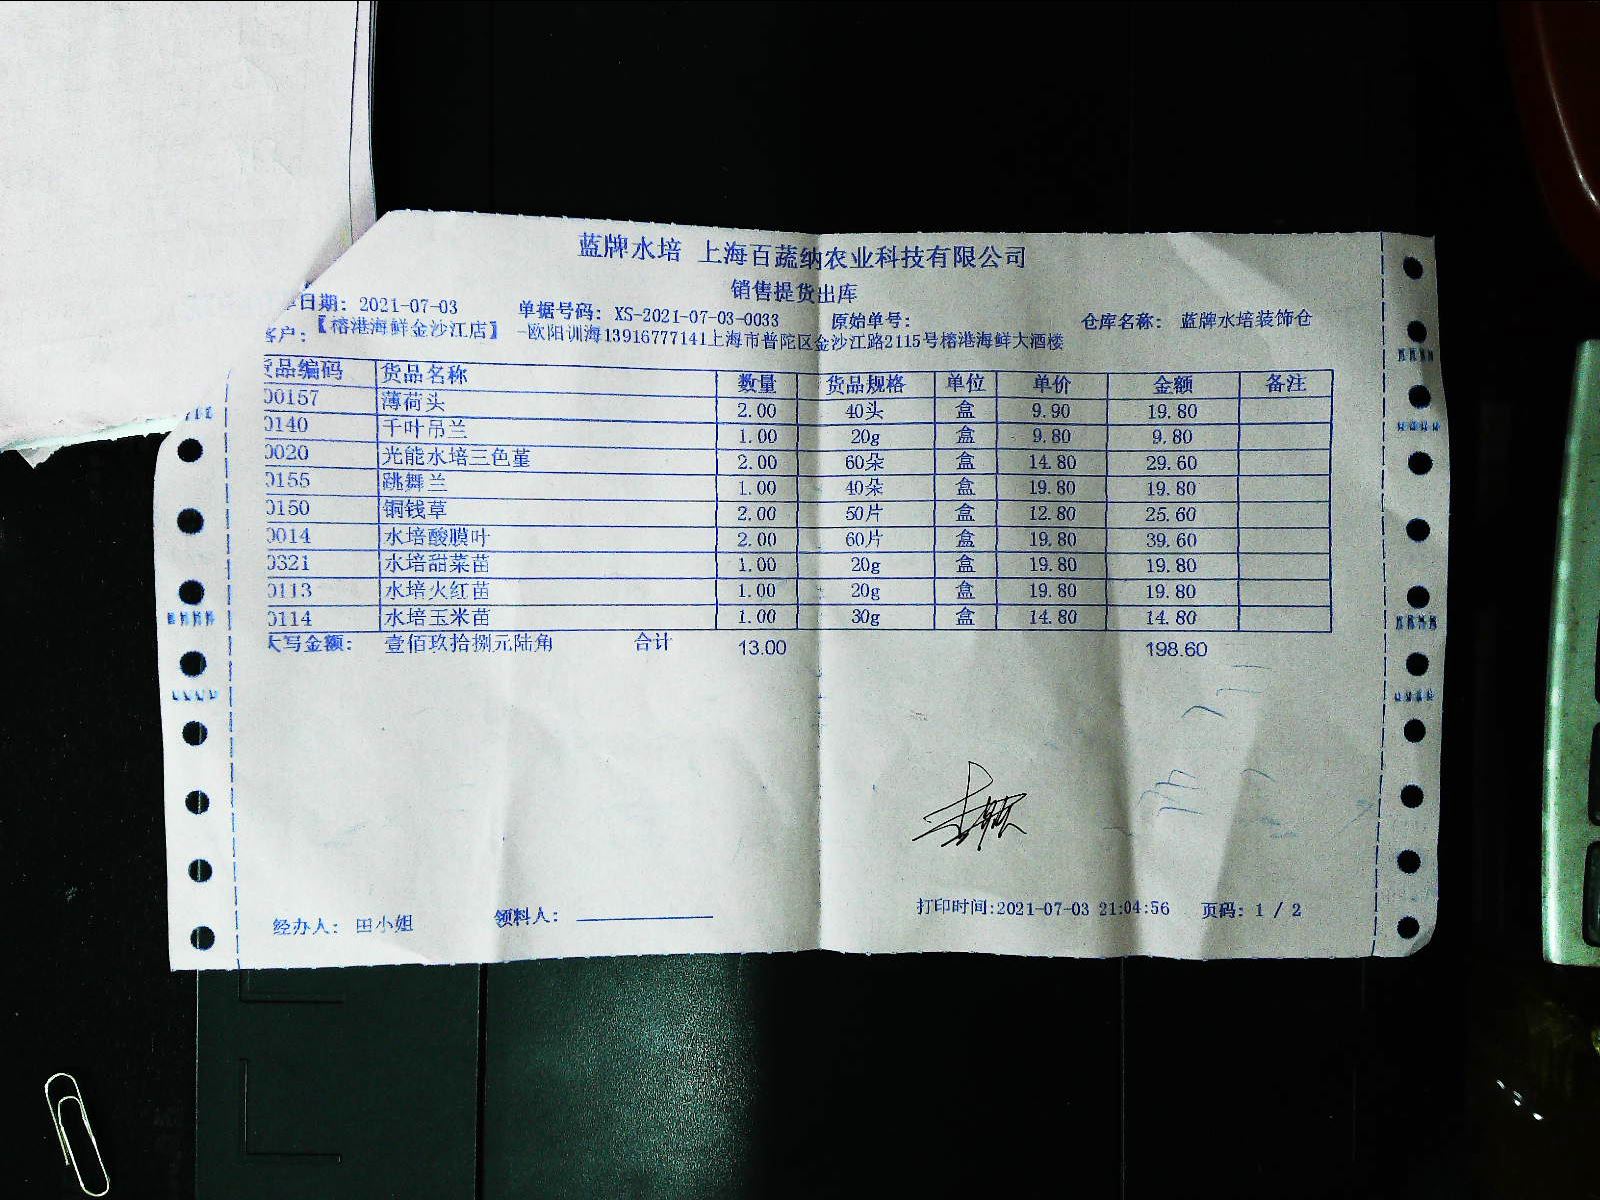 蓝牌水培 上海百蔬纳农业科技有限公司
销售提货出库
日期: 2021-07-03 单据号码: XS-2021-07-03-0033 原始单号: 仓库名称: 蓝牌水培装饰仓
客户: 【榕港海鲜金沙江店】 -欧阳训海13916777141上海市普陀区金沙江路2115号榕港海鲜大酒楼
货品编码 货品名称 数量 货品规格 单位 单价 金额 备注
00157 薄荷头 2.00 40头 盒 9.90 19.80
0140 千叶吊兰 1.00 20g 盒 9.80 9.80
0020 光能水培三色堇 2.00 60朵 盒 14.80 29.60
0155 跳舞兰 1.00 40朵 盒 19.80 19.80
0150 铜钱草 2.00 50片 盒 12.80 25.60
0014 水培酸膜叶 2.00 60片 盒 19.80 39.60
0321 水培甜菜苗 1.00 20g 盒 19.80 19.80
0113 水培火红苗 1.00 20g 盒 19.80 19.80
0114 水培玉米苗 1.00 30g 盒 14.80 14.80
大写金额: 壹佰玖拾捌元陆角 合计 13.00 198.60
经办人: 田小姐 领料人: 打印时间:2021-07-03 21:04:56 页码: 1 / 2